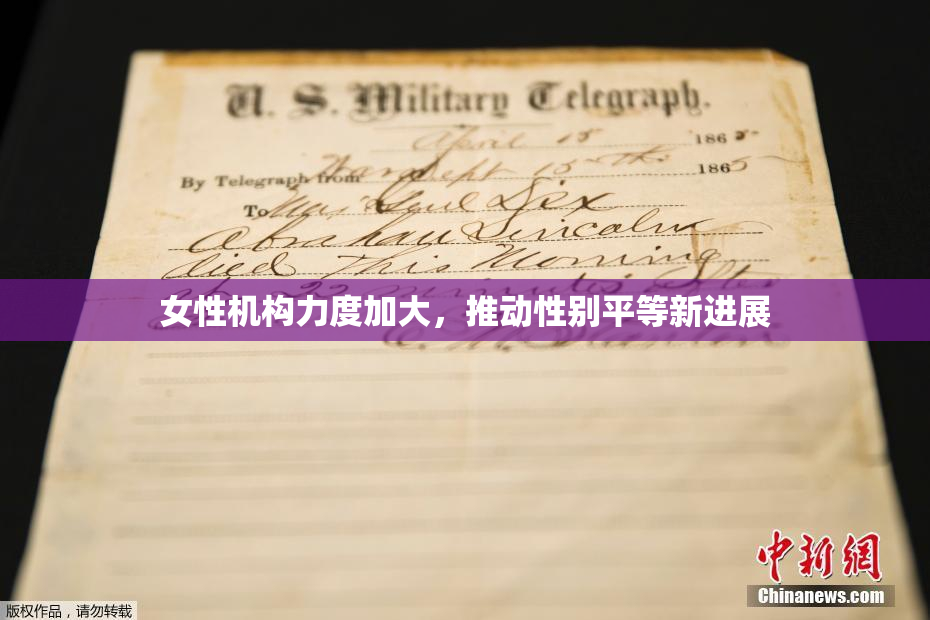 U. S. Military Telegraph.
April 15 1865
By Telegraph from War Dept 15th 1865
To Maj Genl Dix
Abraham Lincoln
died This Morning
at 22 minutes after
女性机构力度加大，推动性别平等新进展
E. M. Stanton
中新网
Chinanews.com
版权作品，请勿转载